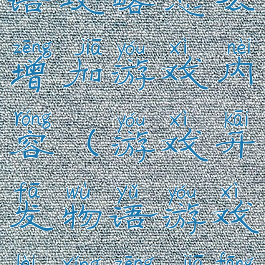 zēng jiā yóu xì nèi
增加游戏内
róng yóu xì kāi
容（游戏开
fā wù yǔ yóu xì
发物语游戏